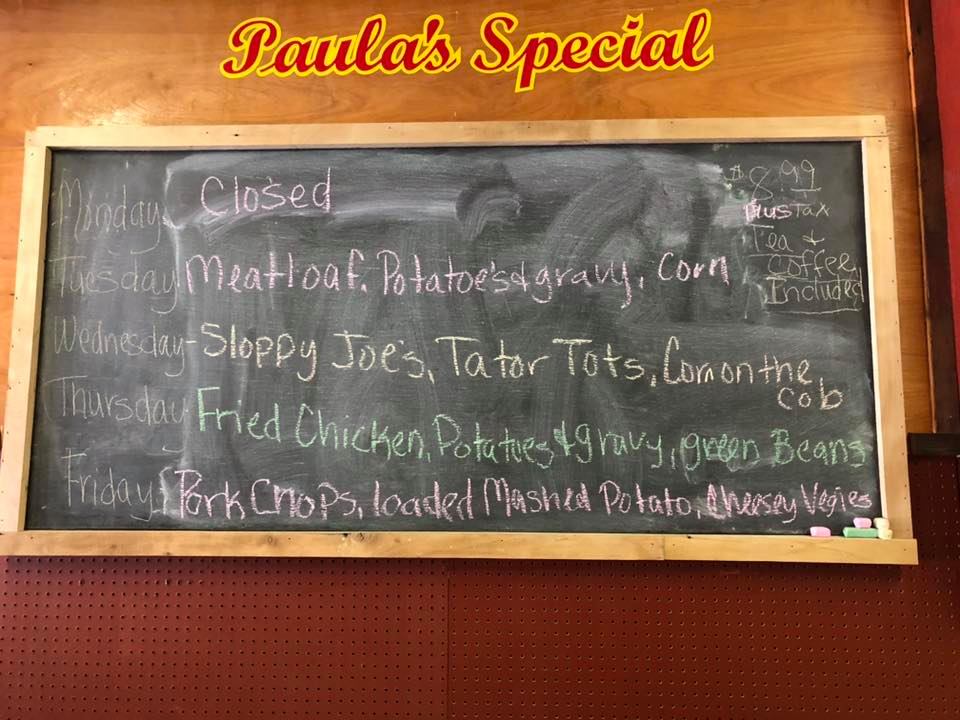 Paula's Special
Monday Closed
Tuesday Meatloaf. Potatoe's & gravy, Corn
Wednesday - Sloppy Joe's, Tator Tots, Corn on the
cob
Thursday Fried Chicken, Potatoes & gravy, green Beans
Friday: Pork Chops, loaded Mashed Potato, Cheesey Vegies
$8.99
plus Tax
Tea &
coffee
Included